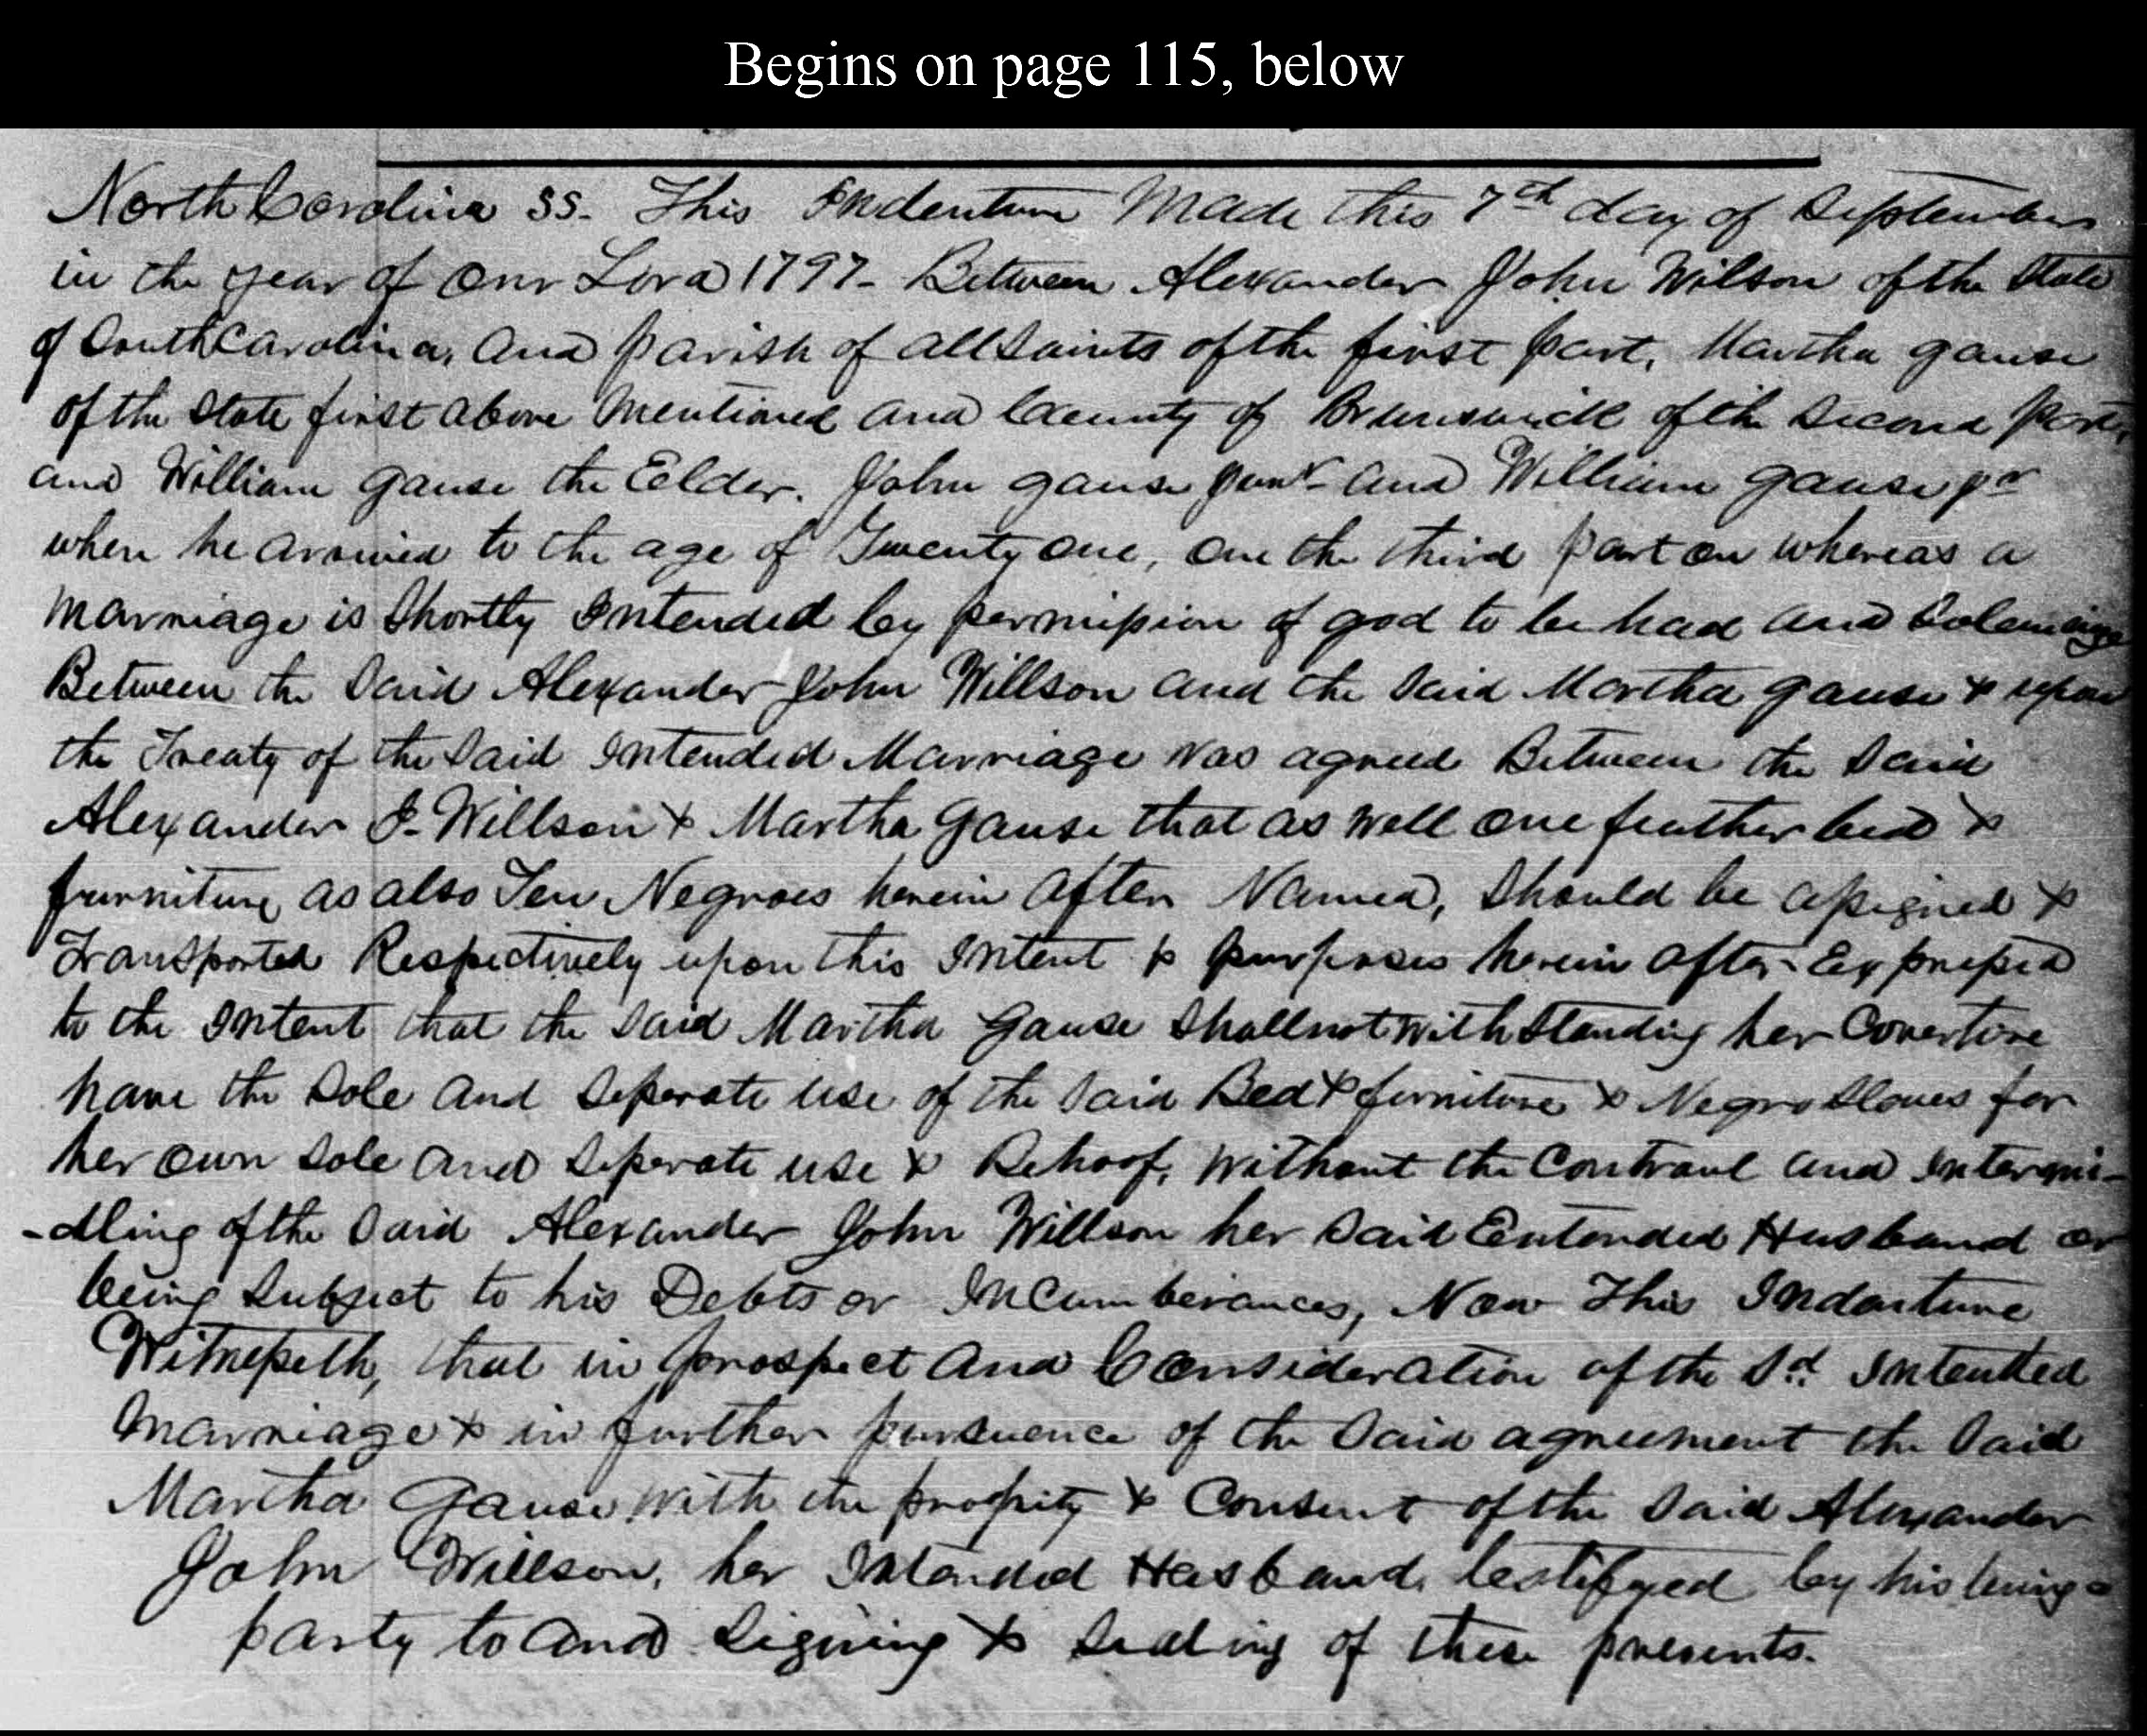 Begins on page 115, below
North Carolina SS. This Indenture Made this 7th day of September
in the year of our Lord 1797- Between Alexander John Wilson of the State
of South Carolina, and parish of all Saints of the first part, Martha Gause
of the State first above Mentioned and County of Brunswick of the Second part,
and William Gause the Elder. John Gause Junr and William Gause Jr
when he arrived to the age of Twenty one, on the third part on whereas a
Marriage is Shortly Intended by permission of god to be had and Solemnize
Between the Said Alexander John Willson and the Said Martha Gause & upon
the Treaty of the Said Intended Marriage was agreed Between the Said
Alexander J. Willson & Martha Gause that as well one feather bed &
furniture, as also Ten Negroes herein after Named, Should be assigned &
Transported Respectively upon this Intent & purposes herein after Expressed
to the Intent that the Said Martha Gause Shall notwithStanding her Coverture
have the Sole and Seperate use of the Said Bed & furniture & Negro Slaves for
her own Sole and Seperate use & Behoof, without the Controul and Intermi-
-dling of the Said Alexander John Willson her Said Entended Husband or
being Subject to his Debts or InCumberances, Now This Indenture
Witnesseth, that in prospect and Consideration of the Sd. Intended
Marriage & in further pursuence of the Said agreement the Said
Martha Gause with the & Consent of the Said Alexander
John Willson, her Intended Husband, testifyed by his being a
party to and Signing & Sealing of these presents.